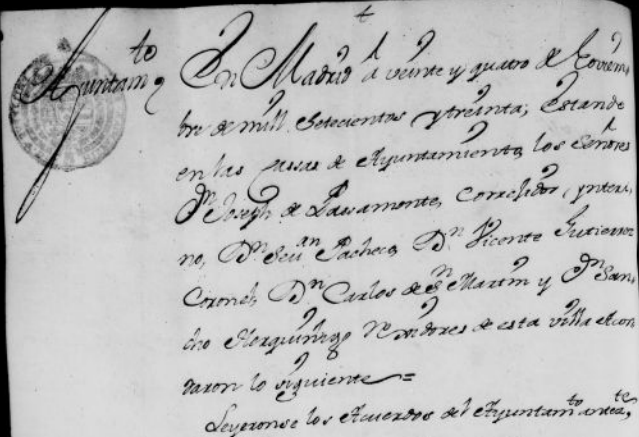 Ayuntam.to
En Madrid a veinte y quatro de Noviem,
bre de mill Setecientos y treinta; estando
en las cassas de Ayuntamiento, los Señores
Dn Joseph de Passamonte, Correxidor, ynteri,
no, Dn Seuan Pacheco, Dn Vicente Gutierrez
Coronel, Dn Carlos de Sn Martin y Dn San,
cho rexidores de esta villa Acor
daron lo siguiente =
Leyeronse los Acuerdos del Ayuntamto antezte,